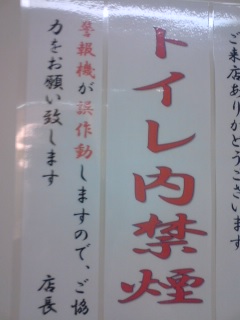 ご来店ありがとうございます
トイレ内禁煙
警報機が誤作動しますので、ご協
力をお願い致します
店長